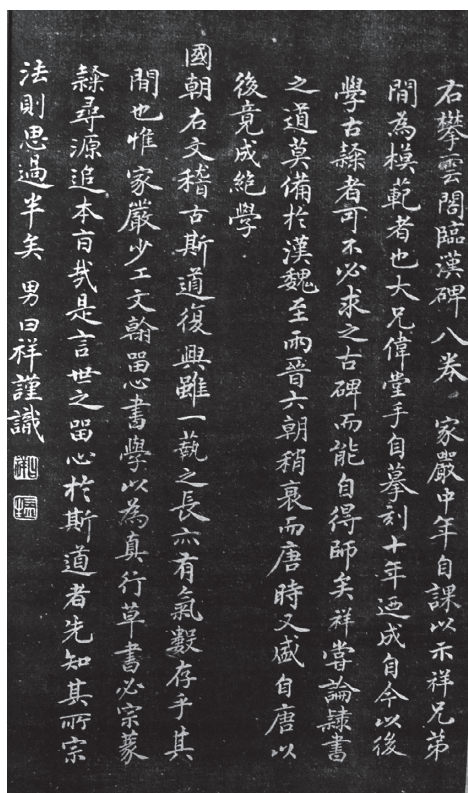 右攀雲閣臨漢碑八卷 家嚴中年自課以示祥兄弟
間為模範者也大兄偉堂手自摹刻十年迺成自今以後
學古隸者可不必求之古碑而能自得師矣祥嘗論隸書
之道莫備於漢魏至兩晉六朝稍衰而唐時又盛自唐以
後竟成絕學
國朝右文稽古斯道復興雖一蓺之長亦有氣數存乎其
間也惟家嚴少工文翰畱心書學以為真行草書必宗篆
隸尋源追本亯哉是言世之畱心於斯道者先知其所宗
法則思過半矣 男曰祥謹識